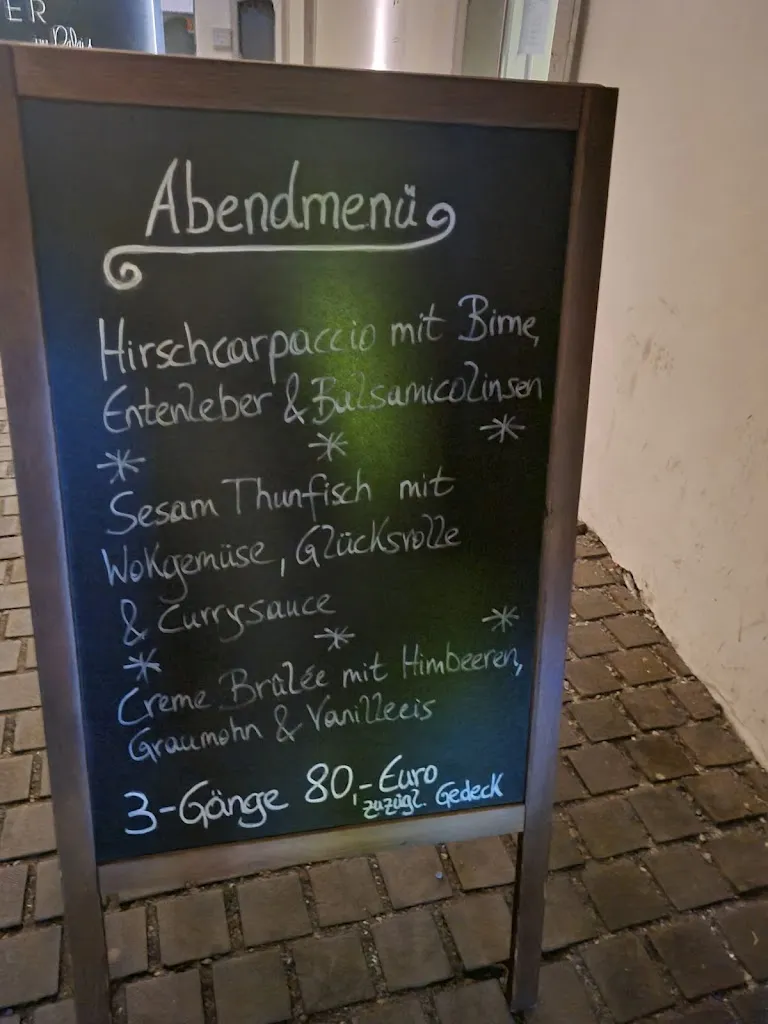 ER
im Palais
Abendmenü
Hirschcarpaccio mit Birne,
Entenleber & Balsamicolinsen
Sesam Thunfisch mit
Wokgemüse, Glücksrolle
& Currysauce
Creme Brûlée mit Himbeeren,
Graumohn & Vanilleeis
3-Gänge 80,- Euro
zuzügl. Gedeck